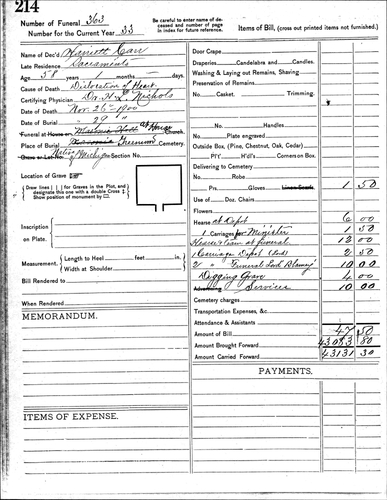 214
Number of Funeral 363
Number for the Current Year 33
Be careful to enter name of deceased and number of page in index for future reference.
Items of Bill, (cross out printed items not furnished.)
Name of Dec'd Harriott Carr
Late Residence Sacramento
Age 58 years 1 months — days.
Cause of Death Dislocation of Heart
Certifying Physician Dr. H. L. Nichols
Date of Death Nov. 26th 1900
Date of Burial " 29 "
Funeral at House Masonic o'clock.
Place of Burial Cemetery
Grave or Lot No. Native of Michigan Section No.
Location of Grave
Draw lines for Graves in the Plot, and designate this one with a double Cross
Show position of monument by
Inscription on Plate.
Measurement, Length to Heel feet in.
Width at Shoulder
Bill Rendered to
When Rendered
MEMORANDUM.
ITEMS OF EXPENSE.
Door Crape
Draperies, Candelabra and Candles.
Washing & Laying out Remains, Shaving
Preservation of Remains
No. Casket. Trimming.
No. Handles
Plate engraved
Outside Box, (Pine, Chestnut, Oak, Cedar)
P't'y H'dl's Corners on Box.
Delivering to Cemetery
No. Robe
Prs. Gloves 1 50
Use of Doz. Chairs
Flowers
Hearse at Depot 6 00
1 Carriages for Minister 1 50
Hearse & Team at funeral 12 00
1 Carriage Depot 2 50
2 " Funeral 10 00
Digging Grave 4 00
Advertising Services 10 00
Cemetery charges
Transportation Expenses, &c.
Attendance & Assistants
Amount of Bill 47 50
Amount Brought Forward 43083 80
Amount Carried Forward 43131 30
PAYMENTS.